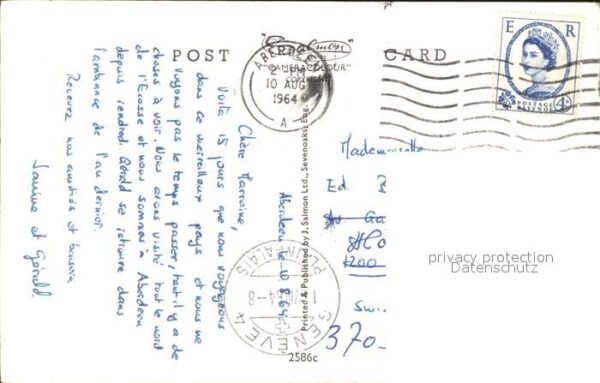 POST CARD
"Salmon"
"CAMERACOLOUR"
COPYRIGHT
ABERDEEN
2 PM
10 AUG
1964
A
E R
POSTAGE
REVENUE
4D
Aberdeen 10.8.64
Chère Marraine,
Voilà 15 jours que nous voyageons
dans ce merveilleux pays et nous ne
voyons pas le temps passer, tant il y a de
choses à voir. Nous avons visité tout le nord
de l'Écosse et nous sommes à Aberdeen
depuis vendredi. Gérald se retrouve dans
l'ambiance de l'an dernier.
Recevez nos amitiés et baisers
Janine et Gérald
Printed & Published by J. Salmon Ltd., Sevenoaks, Eng. ©
Mademoiselle
Ed.
1200
370-
GENEVE 4
PLAINPALAIS
2586c
privacy protection
Datenschutz